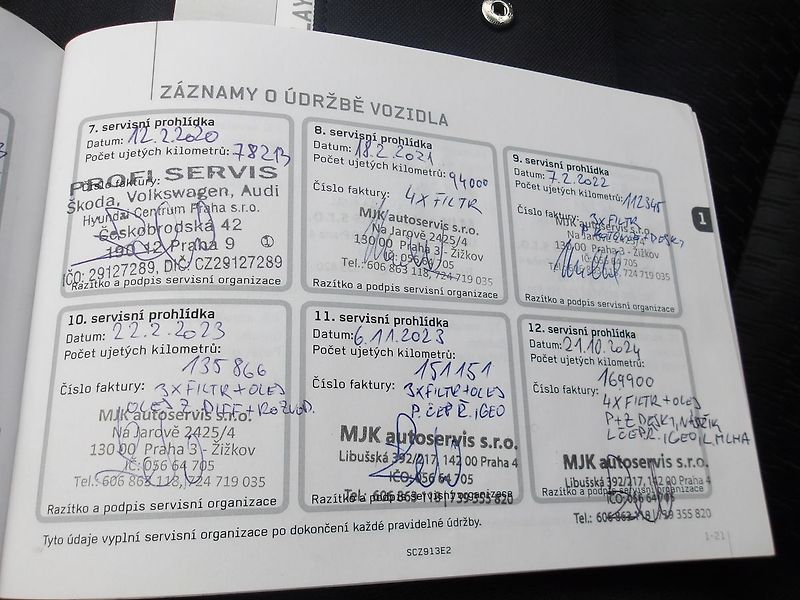 ZÁZNAMY O ÚDRŽBĚ VOZIDLA
7. servisní prohlídka
Datum: 12.2.2020
Počet ujetých kilometrů: 78213
Číslo faktury:
PROFI SERVIS
Škoda, Volkswagen, Audi
Hyundai Centrum Praha s.r.o.
Českobrodská 42
190 12 Praha 9 ①
IČO: 29127289, DIČ: CZ29127289
Razítko a podpis servisní organizace
8. servisní prohlídka
Datum: 18.2.2021
Počet ujetých kilometrů:
94000
Číslo faktury: 4X FILTR
MJK autoservis s.r.o.
Na Jarově 2425/4
130 00 Praha 3 - Žižkov
IČ: 056 64 705
Tel.: 606 863 118, 724 719 035
Razítko a podpis servisní organizace
9. servisní prohlídka
Datum: 7.2.2022
Počet ujetých kilometrů: 112345
Číslo faktury: 3X FILTR
DESKY
MJK autoservis s.r.o.
Na Jarově 2425/4
130 00 Praha 3 - Žižkov
IČ: 056 64 705
Tel.: 606 863 118, 724 719 035
Razítko a podpis servisní organizace
1
10. servisní prohlídka
Datum: 22.2.2023
Počet ujetých kilometrů:
135866
Číslo faktury: 3XFILTR+OLEJ
OLEJ Z DIFF+ROZVOD.
MJK autoservis s.r.o.
Na Jarově 2425/4
130 00 Praha 3 - Žižkov
IČ: 056 64 705
Tel.: 606 863 118, 724 719 035
Razítko a podpis servisní organizace
11. servisní prohlídka
Datum: 6.11.2023
Počet ujetých kilometrů:
151151
Číslo faktury: 3XFILTR+OLEJ
P. ČEPŘ. IGEO
MJK autoservis s.r.o.
Libušská 392/217, 142 00 Praha 4
IČO: 056 64 705
Tel.: 606 863 118 | 739 355 820
Razítko a podpis servisní organizace
12. servisní prohlídka
Datum: 21.10.2024
Počet ujetých kilometrů:
169900
Číslo faktury: 4X FILTR+OLEJ
P+Z DESKY,
L ČEPŘ. IGEO L MLHA
MJK autoservis s.r.o.
Libušská 392/217, 142 00 Praha 4
Razítko a podpis servisní organizace
IČO: 056 64 705
Tel.: 606 863 118 | 739 355 820
Tyto údaje vyplní servisní organizace po dokončení každé pravidelné údržby.
1-21
SCZ913E2